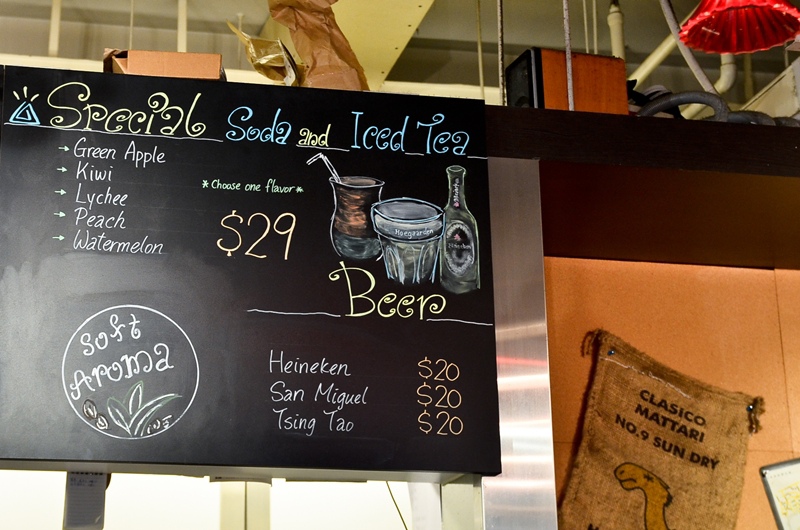 Special Soda and Iced Tea
→ Green Apple
→ Kiwi
→ Lychee
→ Peach
→ Watermelon
* Choose one flavor *
$29
Hoegaarden
Beer
Heineken $20
San Miguel $20
Tsing Tao $20
Soft
Aroma
CLASICO
MATTARI
NO.9 SUN DRY